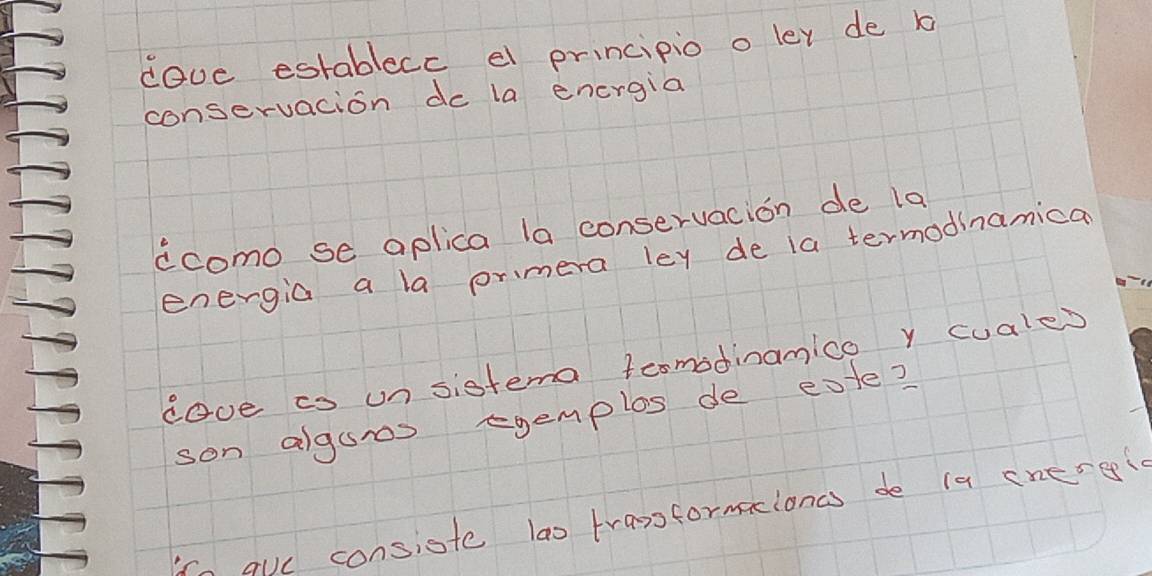 ¿Que establece el principio o ley de la
conservación de la energia
¿como se aplica la conservación de la
energia a la primera ley de la termodinamica
¿Que es un sistema termodinamico y cuales
son algunos egemplos de este?
que consiste las transformaciones de la energia